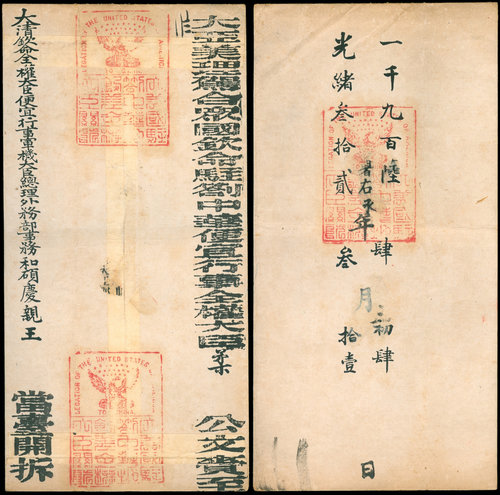 大亞美理駕合衆國欽命駐劄中華便宜行事全權大臣柔 公文賫至
大清欽命全權大臣便宜行事軍機大臣總理外務部事務和碩慶親王
當臺開拆
THE UNITED STATES
LEGATION OF THE UNITED STATES
TO CHINA
一千九百陸 肆 初肆
年 月 日
光緒叁拾貳 叁 拾壹